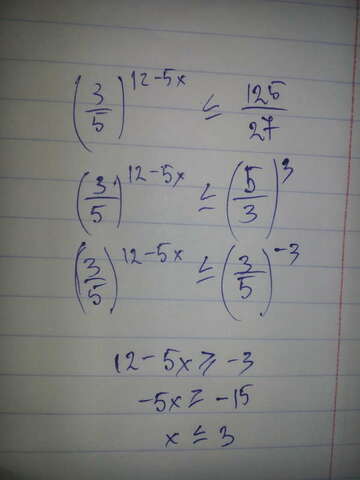 (3/5)^(12-5x) ≤ 125/27
(3/5)^(12-5x) ≤ (5/3)^3
(3/5)^(12-5x) ≤ (3/5)^(-3)
12-5x ≥ -3
-5x ≥ -15
x ≤ 3